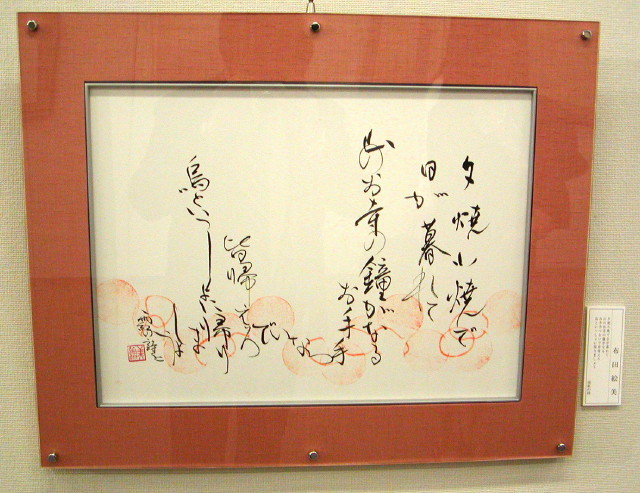 夕焼小焼で
日が暮れて
山のお寺の鐘がなる
お手手
つないで
皆帰ろう
烏といっしょに
帰りま
しょ
雨紅 詩
布田絵美